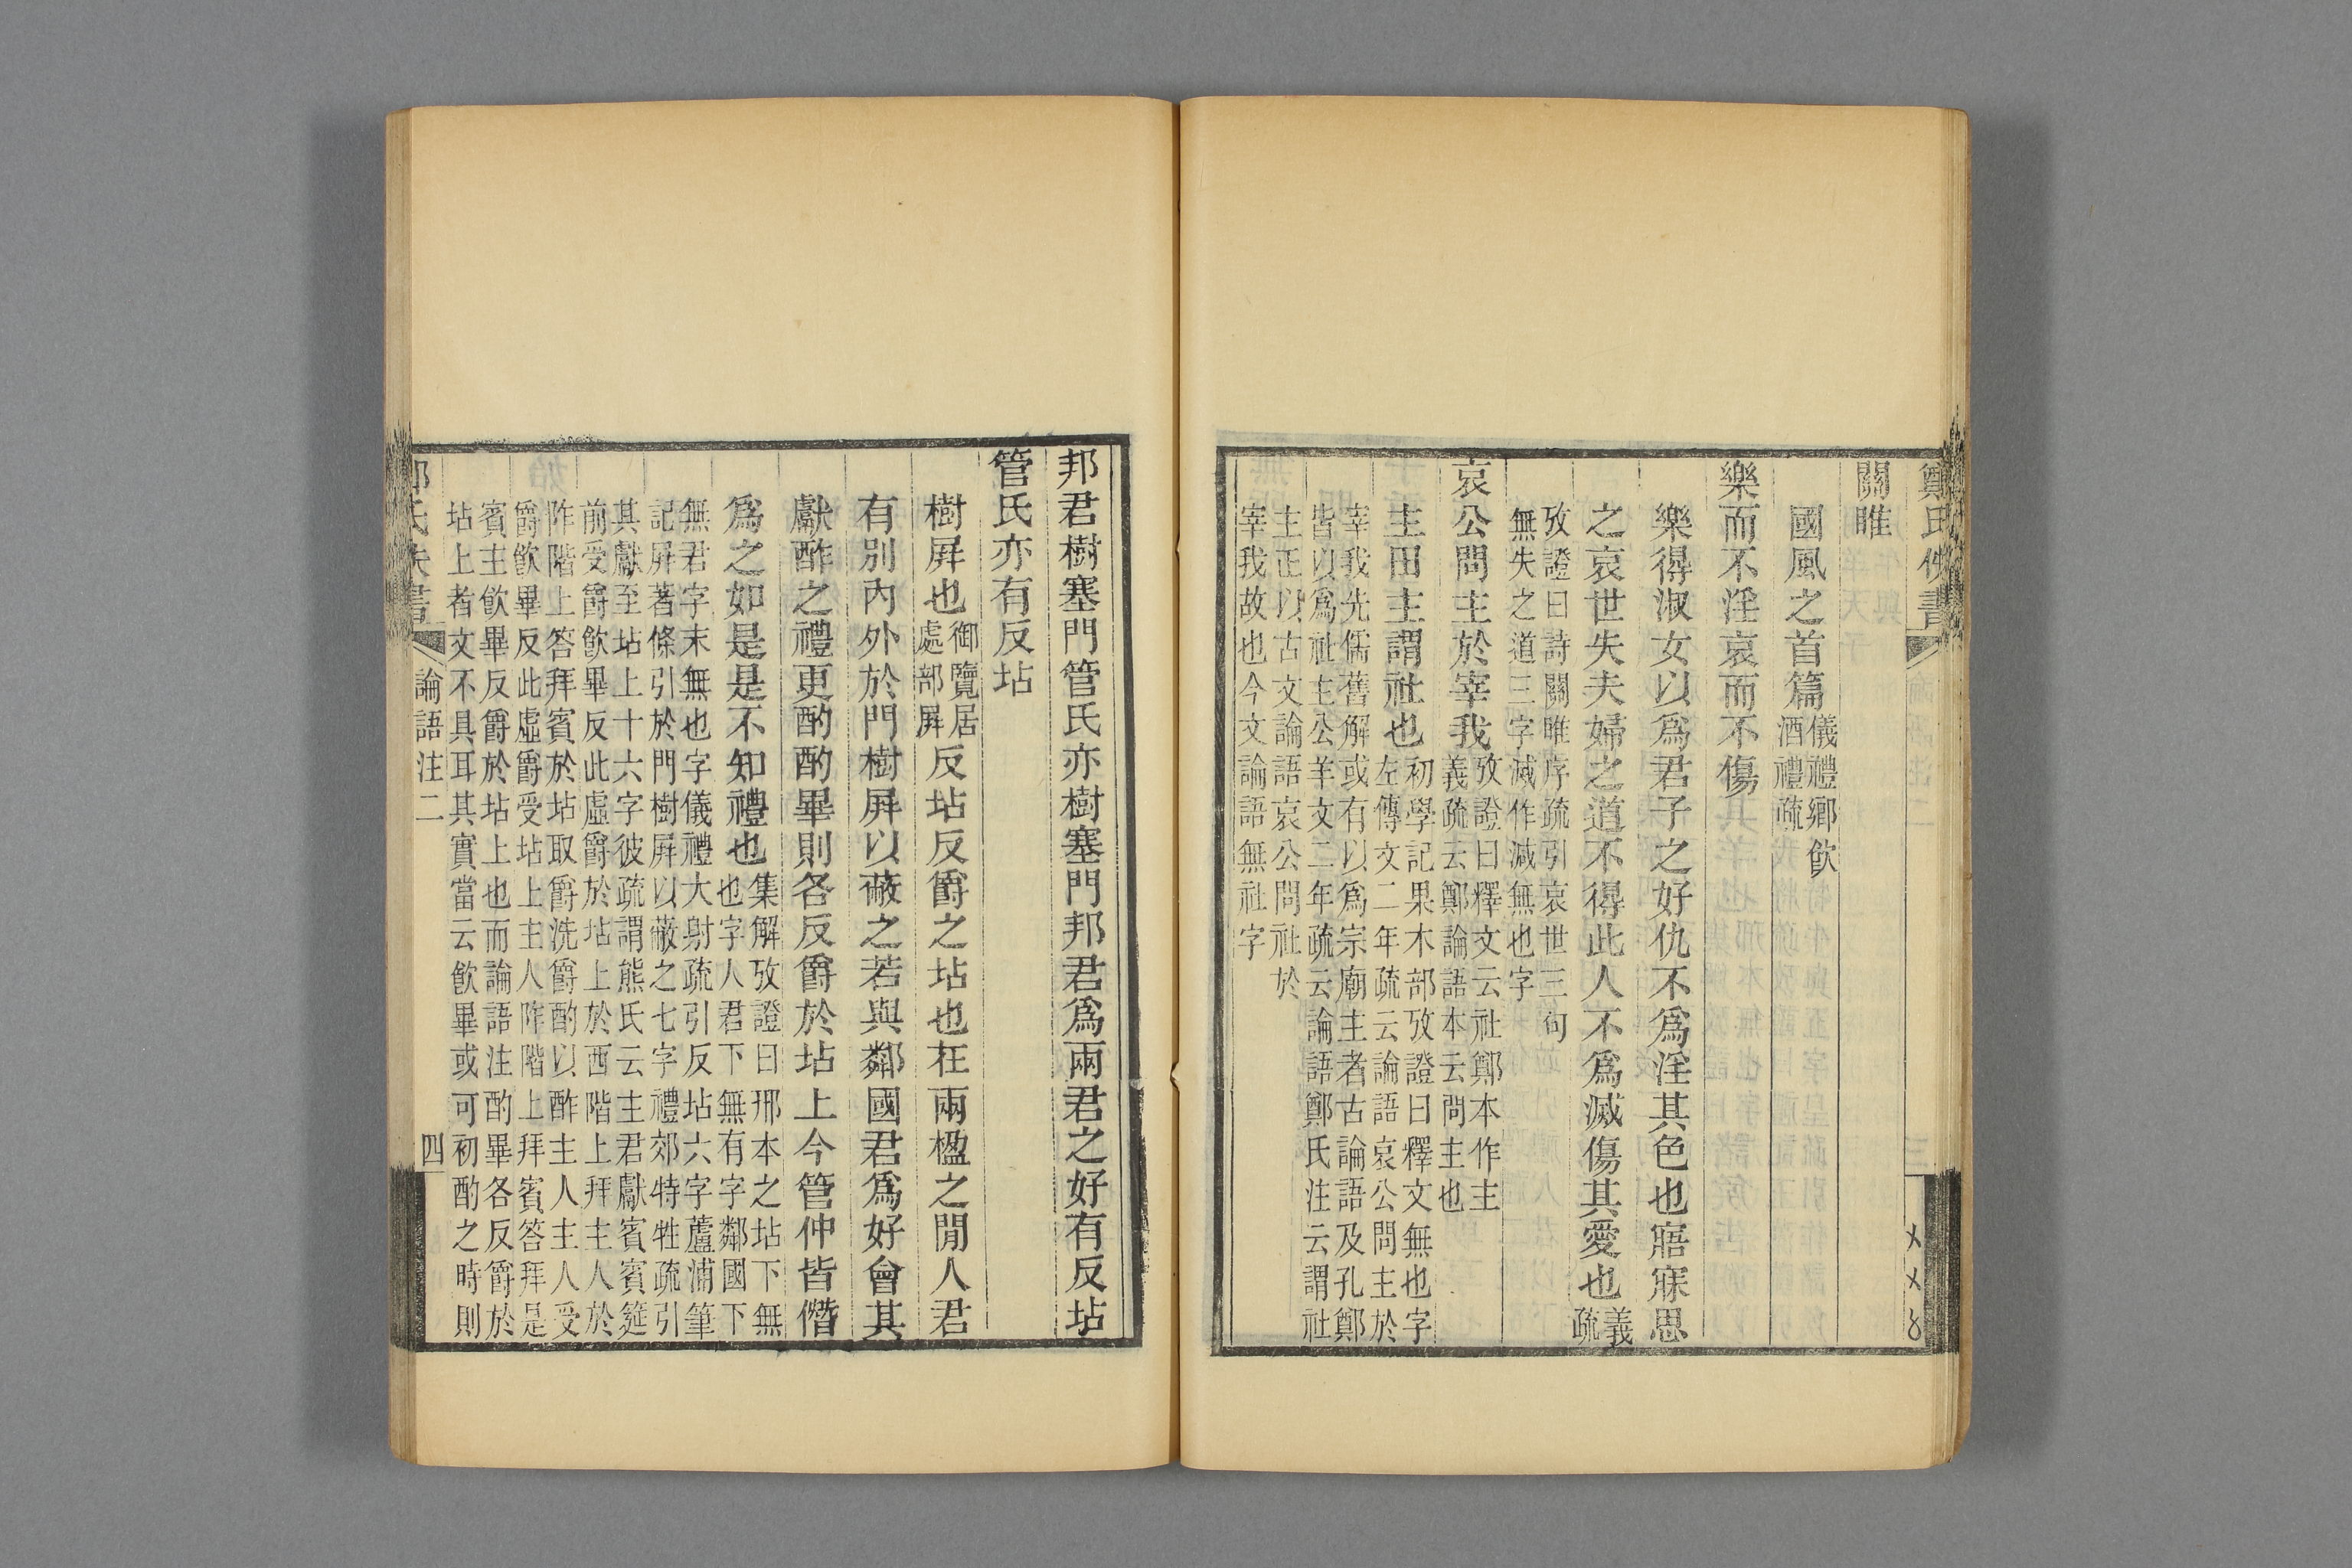 鄭氏佚書
關雎
國風之首篇儀禮鄉飲
酒禮疏
樂而不淫哀而不傷
樂得淑女以爲君子之好仇不爲淫其色也寤寐思
之哀世失夫婦之道不得此人不爲滅傷其愛也義
疏
攷證曰詩關雎序疏引哀世三句
無失之道三字滅作減無也字
哀公問主於宰我攷證曰釋文云社鄭本作主
義疏云鄭論語本云問主也
主田主謂社也初學記果木部攷證曰釋文無也字
左傳文二年疏云論語哀公問主於
宰我先儒舊解或有以爲宗廟主者古論語及孔鄭
皆以爲社主公羊文二年疏云論語鄭氏注云謂社
主正以古文論語哀公問社於
宰我故也今文論語無社字
邦君樹塞門管氏亦樹塞門邦君爲兩君之好有反坫
管氏亦有反坫
樹屏也御覽居
處部屏反坫反爵之坫也在兩楹之閒人君
有別內外於門樹屏以蔽之若與鄰國君爲好會其
獻酢之禮更酌酌畢則各反爵於坫上今管仲皆僭
爲之如是是不知禮也集解攷證曰邢本之坫下無
也字人君下無有字鄰國下
無君字末無也字儀禮大射疏引反坫六字蘆浦筆
記屏著條引於門樹屏以蔽之七字禮郊特牲疏引
其獻至坫上十六字彼疏謂熊氏云主君獻賓賓筵
前受爵飲畢反此虛爵於坫上於西階上拜主人於
阼階上答拜賓於坫取爵洗爵酌以酢主人主人受
爵飲畢反此虛爵受坫上主人阼階上拜賓答拜是
賓主飲畢反爵於坫上也而論語注酌畢各反爵於
坫上者文不具耳其實當云飲畢或可初酌之時則
氏佚書 論語注二 四